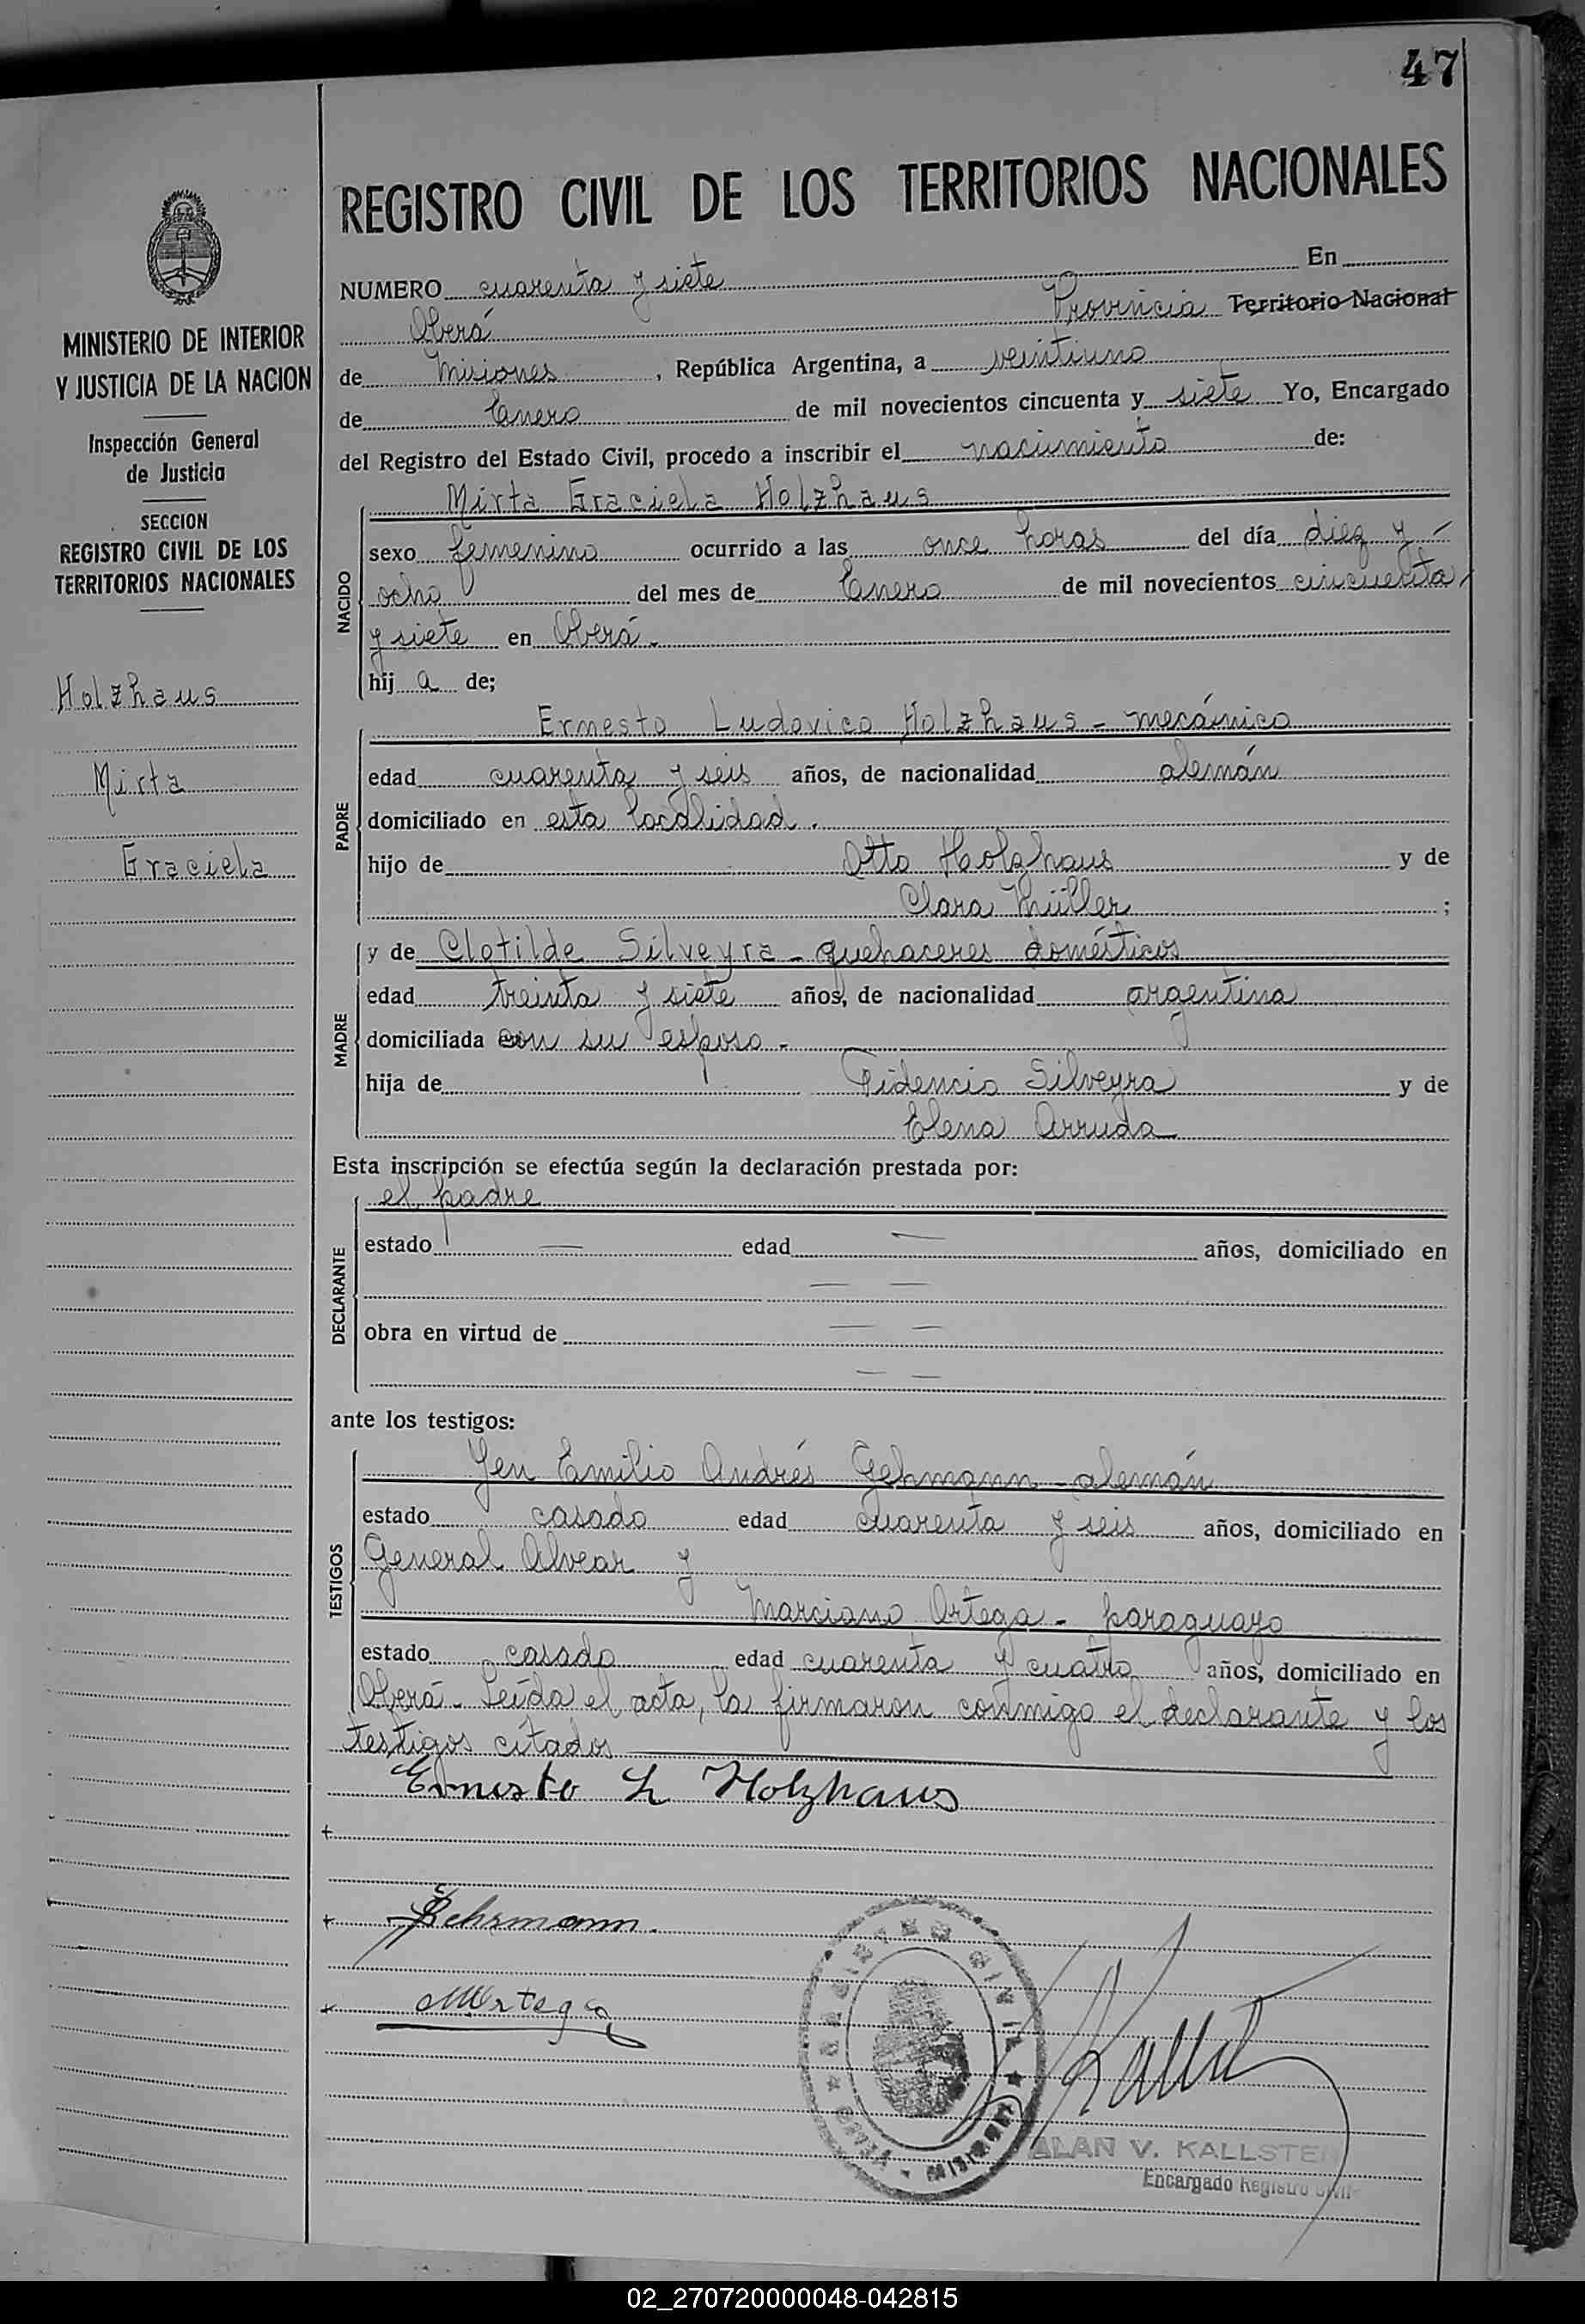 47
REGISTRO CIVIL DE LOS TERRITORIOS NACIONALES
MINISTERIO DE INTERIOR
Y JUSTICIA DE LA NACION
Inspección General
de Justicia
SECCION
REGISTRO CIVIL DE LOS
TERRITORIOS NACIONALES
Holzhaus
Mirta
Graciela
NUMERO cuarenta y siete En
Oberá Provincia Territorio Nacional
de Misiones, República Argentina, a veintiuno
de Enero de mil novecientos cincuenta y siete Yo, Encargado
del Registro del Estado Civil, procedo a inscribir el nacimiento de:
NACIDO
Mirta Graciela Holzhaus
sexo femenino ocurrido a las once horas del día diez y -
ocho del mes de Enero de mil novecientos cincuenta
y siete en Oberá.
hij a de;
PADRE
Ernesto Ludovico Holzhaus - mecánico
edad cuarenta y seis años, de nacionalidad alemán
domiciliado en esta localidad.
hijo de Otto Holzhaus y de
Clara Müller ;
MADRE
y de Clotilde Silveyra - quehaceres domésticos
edad treinta y siete años, de nacionalidad argentina
domiciliada con su esposo.
hija de Fidencio Silveyra y de
Elena Arruda
Esta inscripción se efectúa según la declaración prestada por:
DECLARANTE
el padre
estado — edad — años, domiciliado en
— —
obra en virtud de — —
— —
ante los testigos:
TESTIGOS
Jen Emilio Andrés Gehmann - alemán
estado casado edad cuarenta y seis años, domiciliado en
General Alvear y
Marciano Ortega - paraguayo
estado casado edad cuarenta y cuatro años, domiciliado en
Oberá - Leída el acta, la firmaron conmigo el declarante y los
testigos citados
Ernesto L Holzhaus
Gehrmann.
MOrtega
REGISTRO CIVIL ★ MISIONES - OBERA ★
ALAN V. KALLSTEN
Encargado Registro Civil
02_270720000048-042815